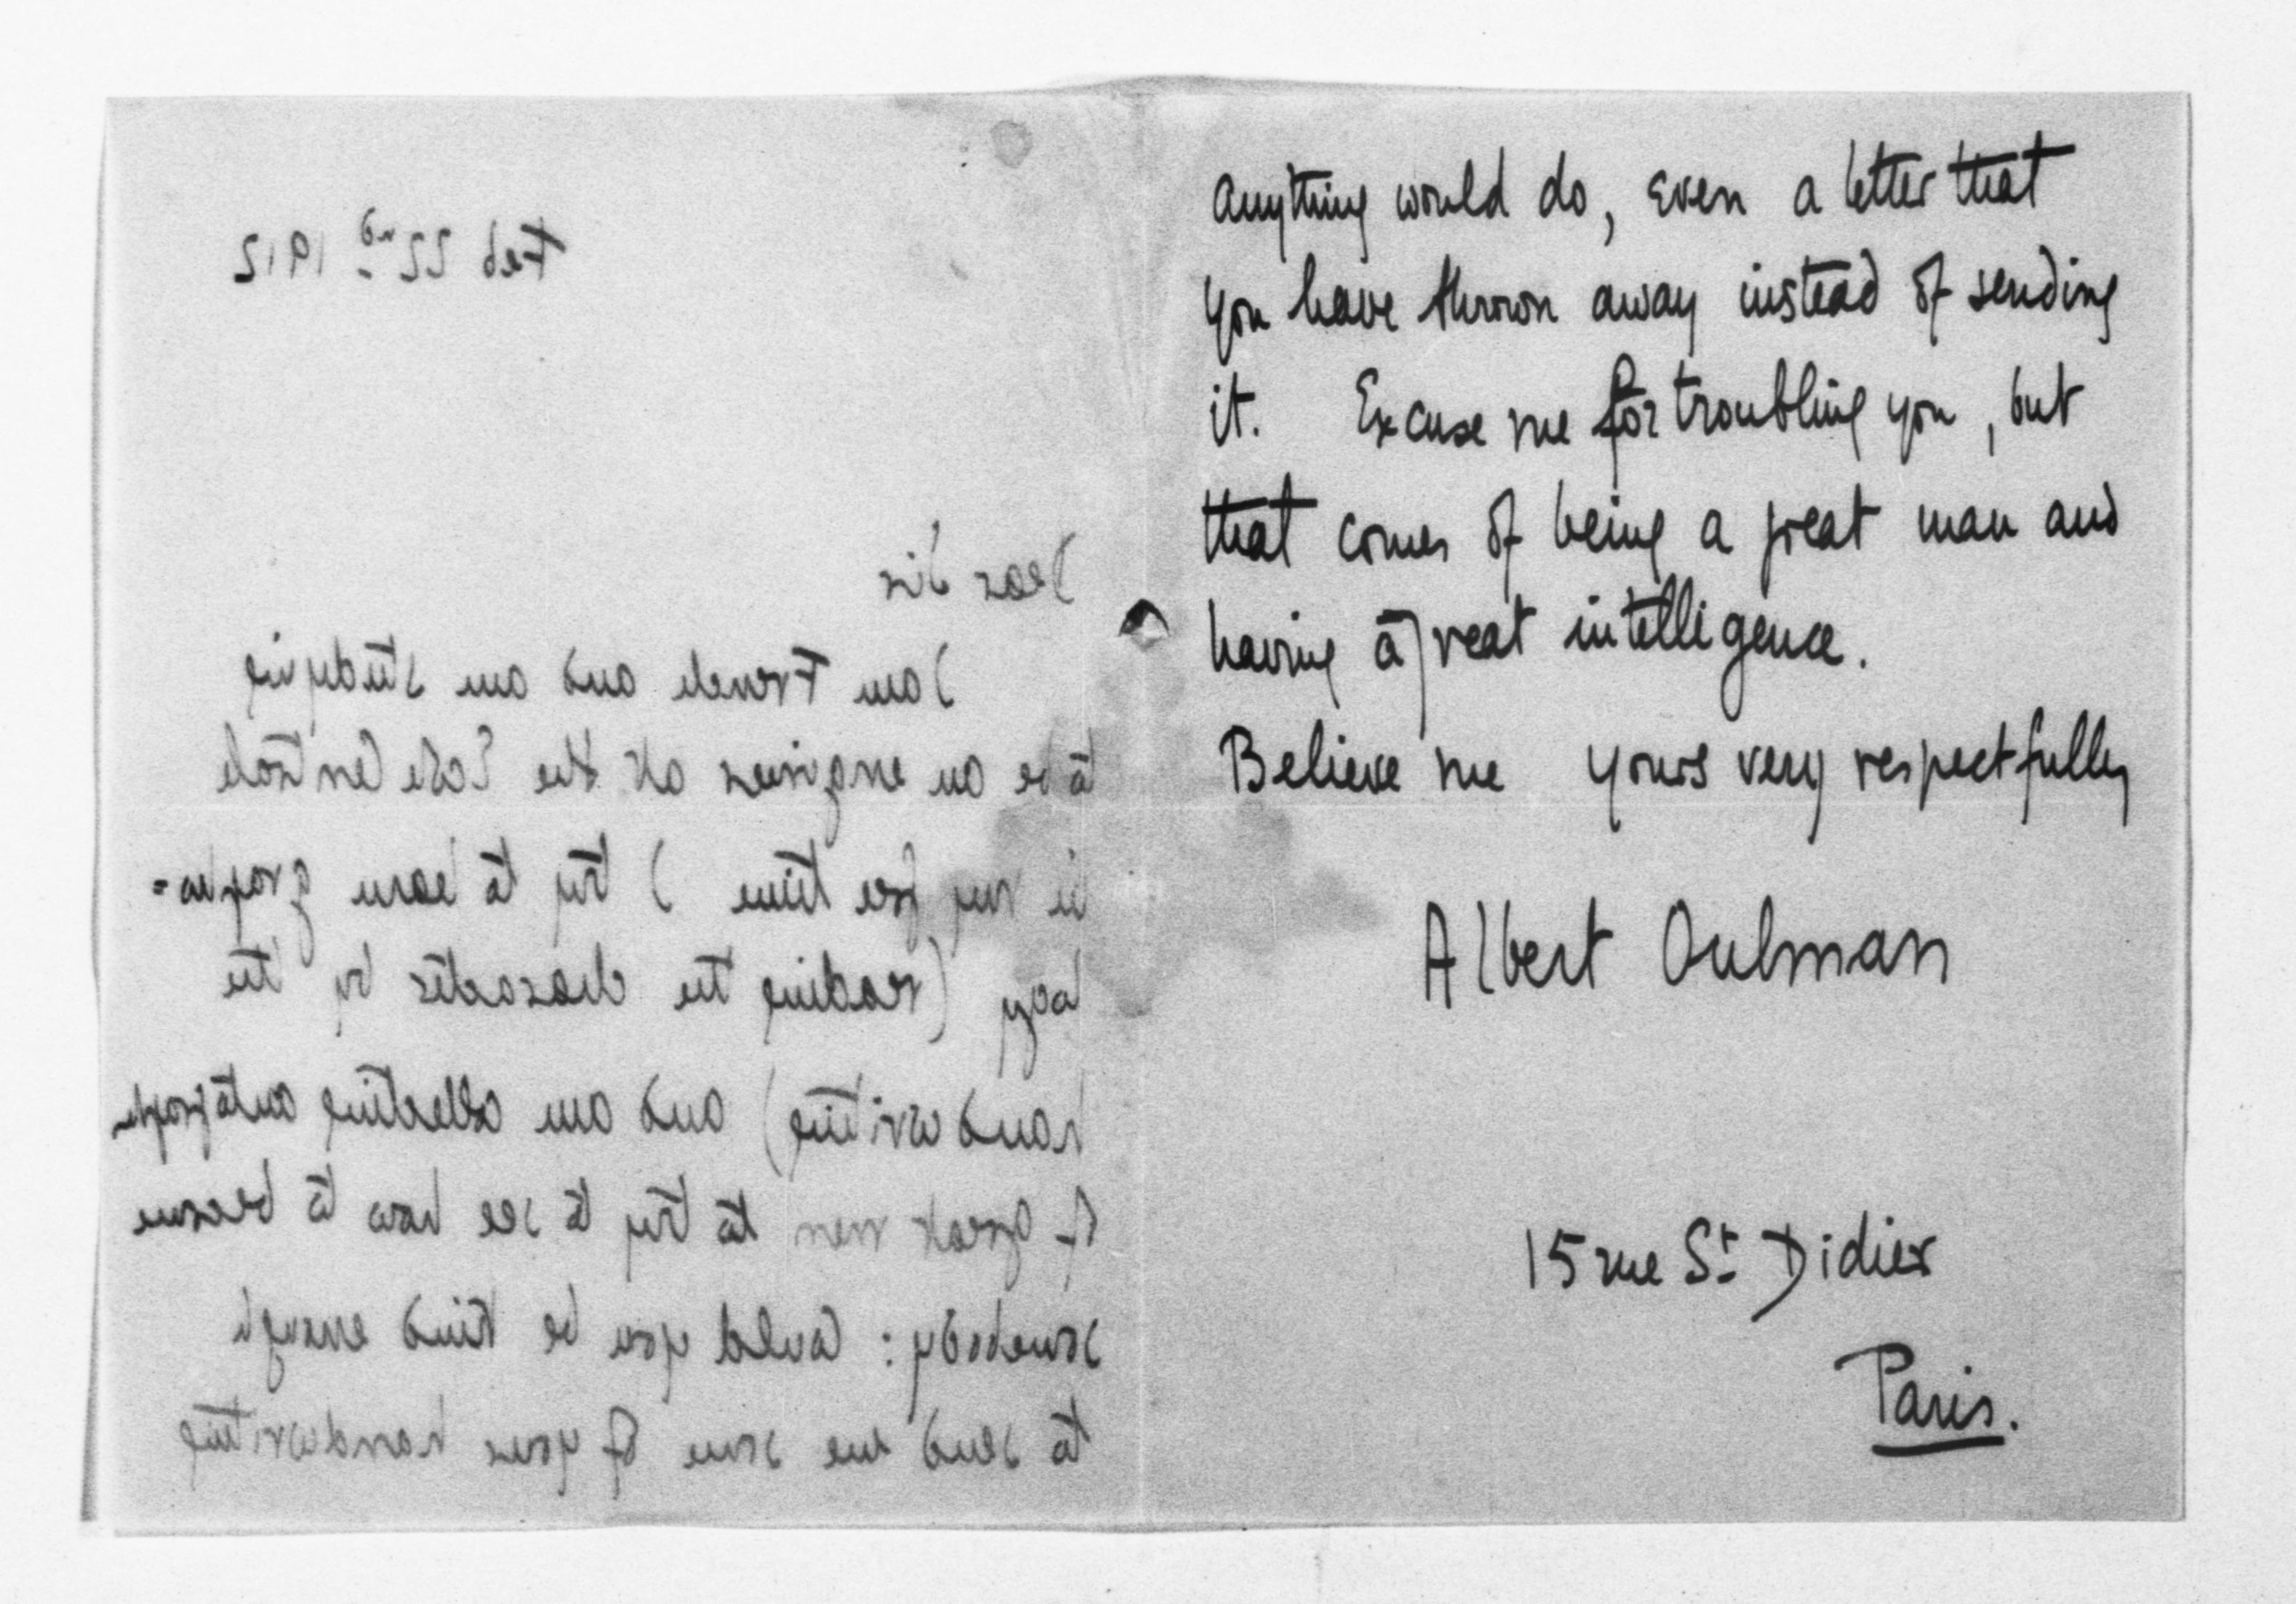 Feb 22nd 1912
Dear Sir
I am French and am studying
to be an engineer at the Ecole Centrale
in my free time I try to learn grapho=
logy (reading the character by the
hand writing) and am collecting autographs
of great men to try to see how to become
somebody: would you be kind enough
to send me some of your handwriting
anything would do, even a letter that
you have thrown away instead of sending
it. Excuse me for troubling you, but
that comes of being a great man and
having a great intelligence.
Believe me yours very respectfully
Albert Oulman
15 rue St Didier
Paris.